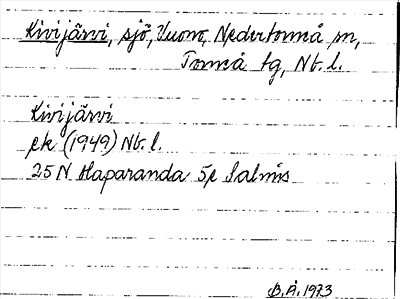 Kivijärvi, sjö, Vuono, Nedertorneå sn,
Torneå tg, Nb. l.
Kivijärvi
ek (1949) Nb. l.
25 N Haparanda 5e Salmis
B.Å. 1973